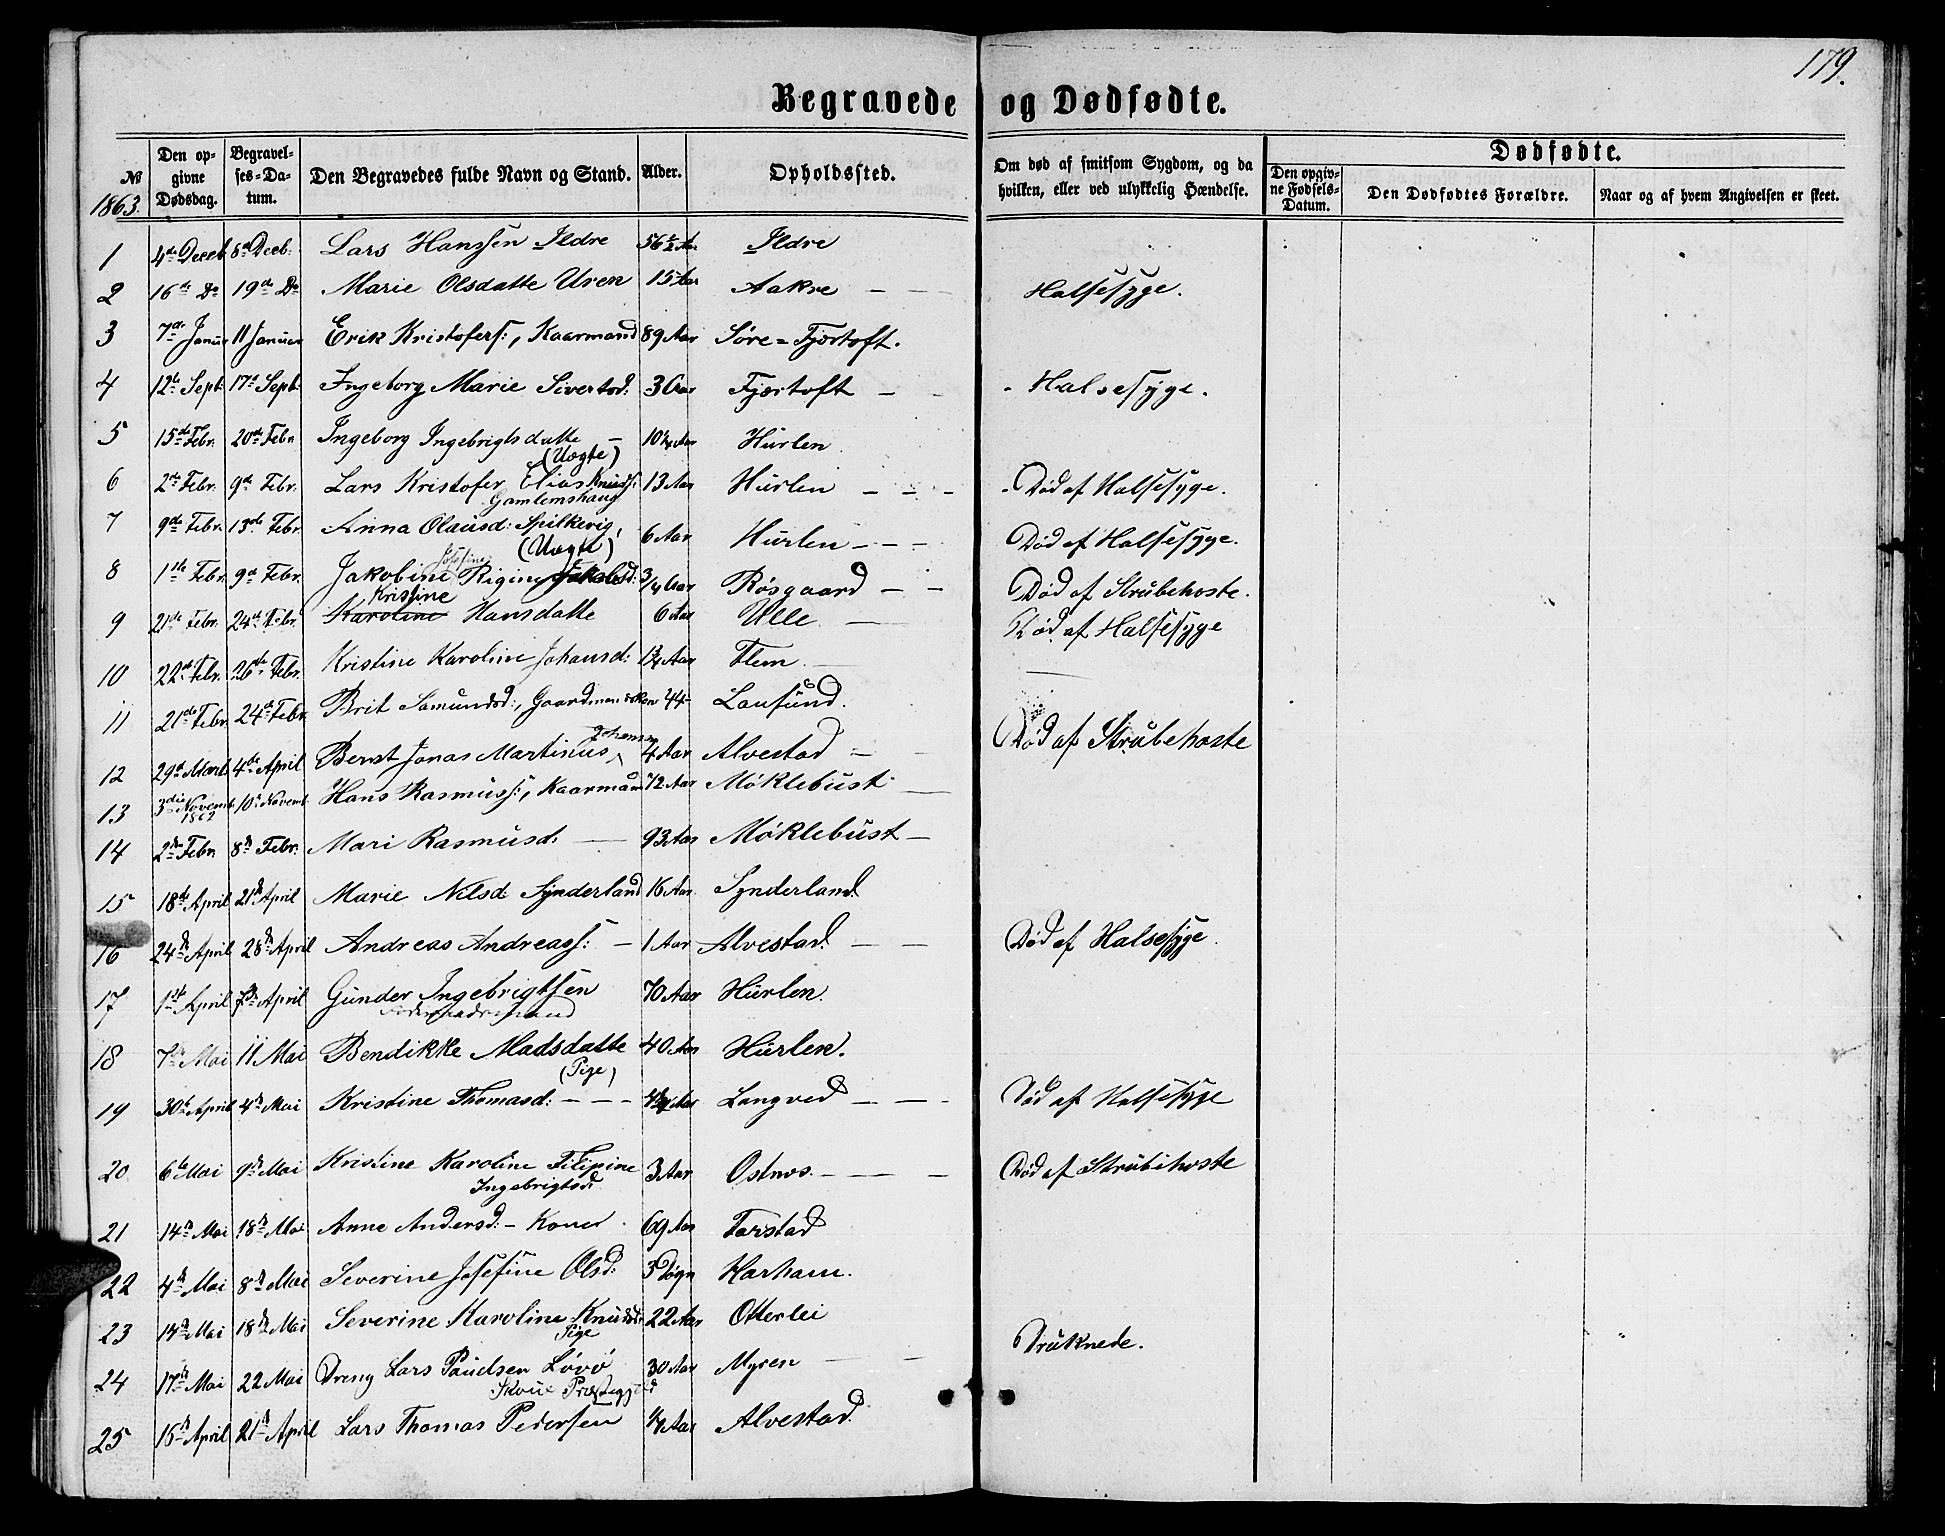 179.
Begravede og Dødfødte.
№ 1863. | Den opgivne Dødsdag. | Begravelses-Datum. | Den Begravedes fulde Navn og Stand. | Alder. | Opholdssted. | Om død af smitsom Sygdom, og da hvilken, eller ved ulykkelig Hændelse. | Dødfødte. | Den opgivne Fødsels-Datum. | Den Dødfødtes Forældre. | Naar og af hvem Angivelsen er skeet.
1 4de Deceb. 8de Decb. Lars Hanssen Ildre 56 ½ Aar Ildre
2 16de Do 19de Do Marie Olsdatte Uren 15 Aar Aakre — — Halsesyge.
3 7de Januar 11 Januar Erik Kristofers:, Kaarmand 89 Aar Søre=Fjørtoft.
4 12te Sept. 17de Sept. Ingeborg Marie Sivertsd: 3 Aar Fjørtoft — — Halsesyge.
5 15de Febr. 20de Febr. Ingeborg Ingebrigtsdatte — 10 ¼ Aar Hurlen
(Uægte)
6 2de Febr. 9de Febr. Lars Kristofer Elias Knuds: 13 Aar Hurlen — — — Død af Halsesyge.
Gamlemshaug
7 9de Febr. 13de Febr. Anna Olausd: Spilkevig, 6 Aar Hurlen — — — Død af Halsesyge.
(Uægte)
Josefine
8 1ste Febr. 9de Febr. Jakobine Rigine Jakobsd: ¾ Aar Røsgaard — — Død af Strubehoste.
Kristine
9 21de Febr. 24de Febr. Karoline Hansdatte 6 Aar Ulle — Død af Halsesyge
10 22de Febr. 26de Febr. Kristine Karoline Johansd: 1¾ Aar Flem —
11 21de Febr. 24de Febr. Brit Samundsd:, Gaardmandskon 44 — Laufund.
Johansen
12 29de Marts 4de April Bernt Jonas Martinus 4 Aar Alvestad — — Død af Strubehoste
13 3die Novemb. 10de Novemb. Hans Rasmuss:, Kaarmand 72 Aar Møklebust —
1862
14 2den Febr. 8de Febr. Mari Rasmusd. — 93 Aar Møklebust —
15 18de April 21de April Marie Nilsd: Synderland 16 Aar Synderland
16 24de April 28de April Andreas Andreass: — 1 Aar Alvestad. — — Død af Halsesyge.
17 1ste April 7de April Gunder Ingebrigtsen 70 Aar Hurlen.
18 7de Mai 11 Mai Bendikke Madsdatte 40 Aar Hurlen.
(Pige)
19 30te April 4de Mai Kristine Thomasd: — — — Aar Langved — — — Død af Halsesyge
20 6te Mai 9de Mai Kristine Karoline Filipine 3 Aar Ostnes. — — — Død af Strubehoste
Ingebrigtsd.
21 14de Mai 18de Mai Anne Andersd: — Kone 69 Aar Farstad
22 4de Mai 8de Mai Severine Josefine Olsd: 3 Døgn Harham.
23 14de Mai 18de Mai Severine Karoline Knudsd. 22 Aar Otterlei
Pige
24 17de Mai 22 Mai Dreng Lars Paudsen Løvø 30 Aar Myren — — Druknede.
Skoue Præstegjeld
25 16de April 21de April Lars Thomas Pedersen ¼ Aar Alvestad.